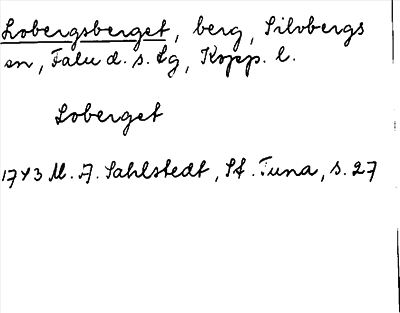 Lobergsberget, berg, Silvbergs
sn, Falu d. s. Lg, Kopp. l.
Loberget
1743 M. A. Sahlstedt, St. Tuna, s. 27